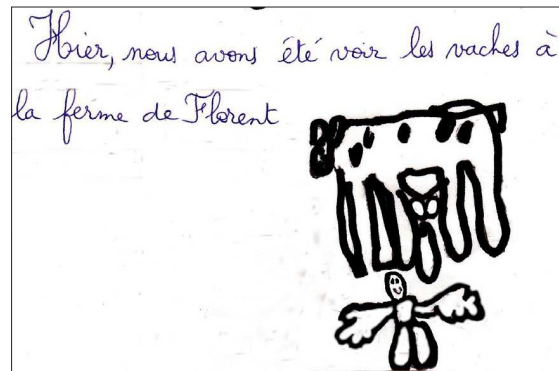 Hier, nous avons été voir les vaches à
la ferme de Florent